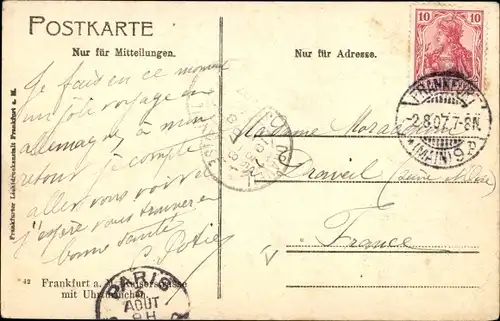 POSTKARTE
Nur für Mitteilungen.
Nur für Adresse.
10 10
FRANKFURT
-2.8.07.7-8N.
(MAIN) 9 P
Je fais en ce moment
un joli voyage en
allemagne, à mon
retour je compte
aller vous voir et
j'espère vous trouver en
bonne santé
Madame
Draveil
France
Frankfurter Lichtdruckanstalt Frankfurt a. M.
42 Frankfurt a. M. Kaiserstrasse
mit Uhrtürmchen.
PARIS
AOUT